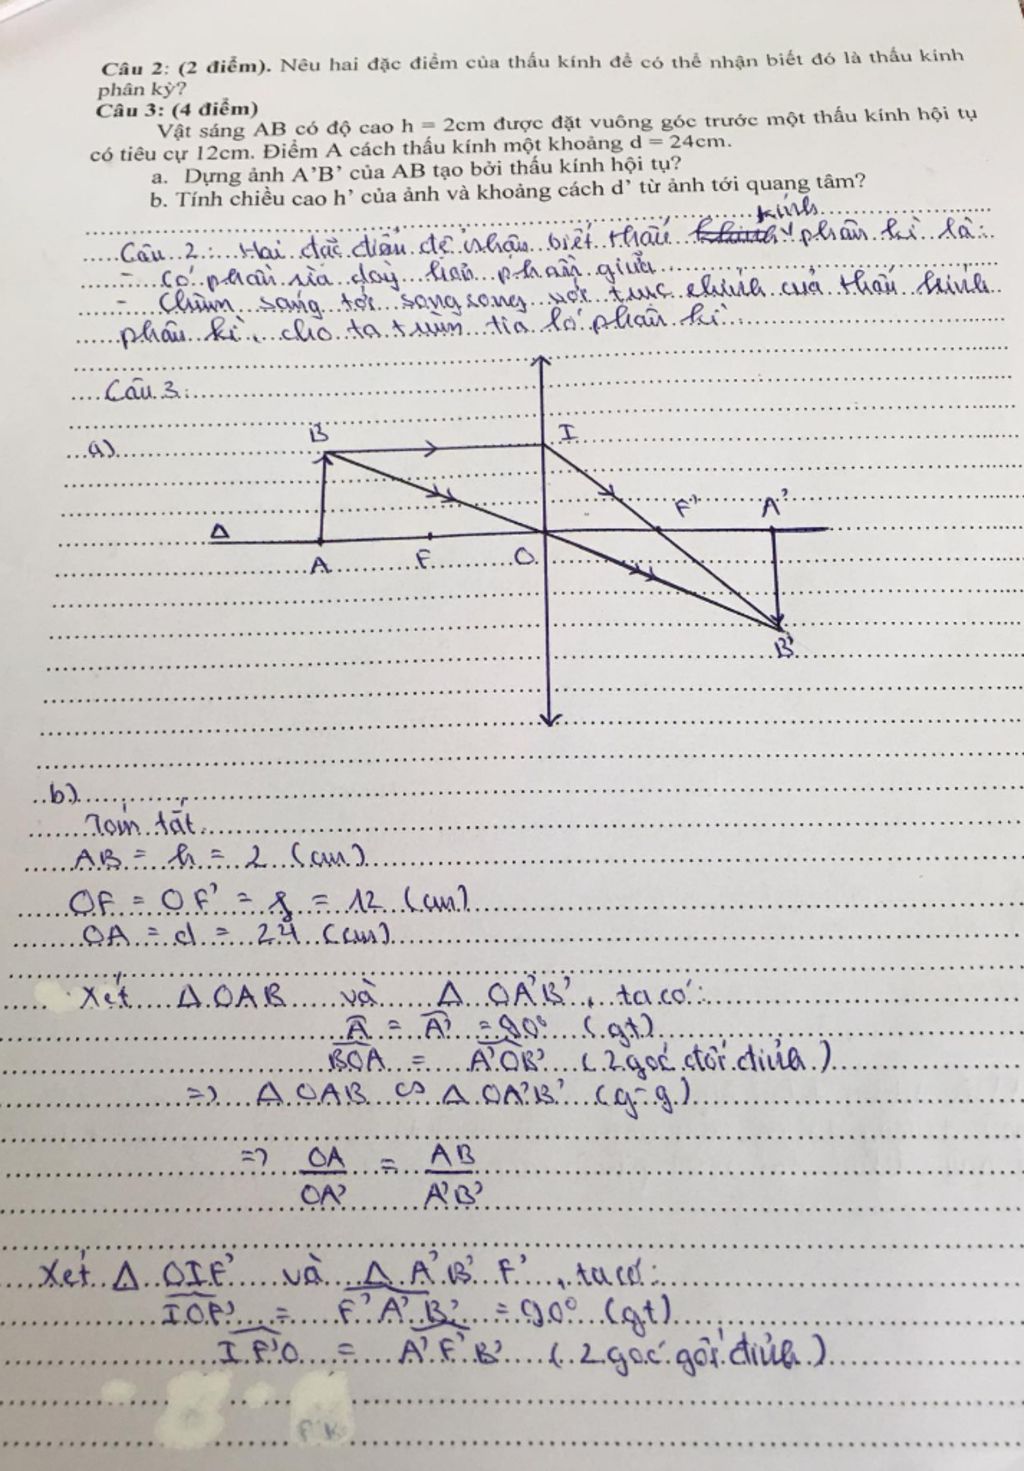 Câu 2: (2 điểm). Nêu hai đặc điểm của thấu kính để có thể nhận biết đó là thấu kính
phân kỳ?
Câu 3: (4 điểm)
Vật sáng AB có độ cao h = 2cm được đặt vuông góc trước một thấu kính hội tụ
có tiêu cự 12cm. Điểm A cách thấu kính một khoảng d = 24cm.
a. Dựng ảnh A'B' của AB tạo bởi thấu kính hội tụ?
b. Tính chiều cao h' của ảnh và khoảng cách d' từ ảnh tới quang tâm?
kính
Câu 2: Hai đặc điểm để nhận biết thấu phân kì là:
- Có phần rìa dày hơn phần giữa
- Chùm sáng tới song song với trục chính của thấu kính
phân kì, cho ta chùm tia ló phân kì.
Câu 3:
a)
B
I
Δ
A
F
O
F'
A'
B'
b)
Tóm tắt
AB = h = 2 (cm)
OF = OF' = f = 12 (cm)
OA = d = 24 (cm)
Xét Δ OAB và Δ OA'B', ta có:
A = A' = 90° (gt)
BOA = A'OB' (2 góc đối đỉnh)
=> Δ OAB ∽ Δ OA'B' (g-g)
=> OA/OA' = AB/A'B'
Xét Δ OIF' và Δ A'B'F', ta có:
IOF' = F'A'B' = 90° (gt)
IF'O = A'F'B' (2 góc gối đỉnh)